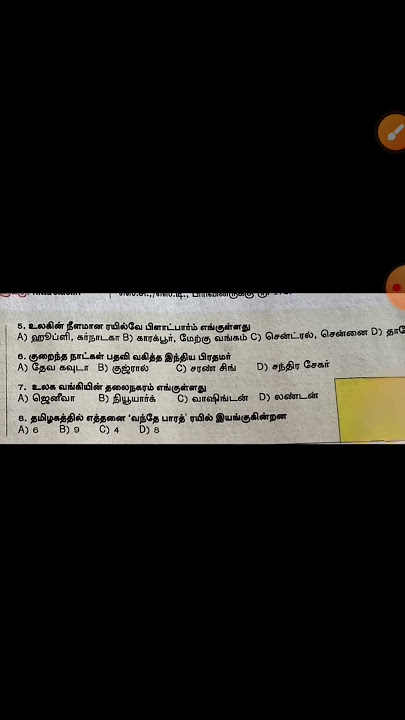 5. உலகின் நீளமான ரயில்வே பிளாட்பார்ம் எங்குள்ளது
A) ஹூப்ளி, கர்நாடகா B) காரக்பூர், மேற்கு வங்கம் C) சென்ட்ரல், சென்னை D)
6. குறைந்த நாட்கள் பதவி வகித்த இந்திய பிரதமர்
A) தேவ கவுடா B) குஜ்ரால் C) சரண் சிங் D) சந்திர சேகர்
7. உலக வங்கியின் தலைநகரம் எங்குள்ளது
A) ஜெனீவா B) நியூயார்க் C) வாஷிங்டன் D) லண்டன்
8. தமிழகத்தில் எத்தனை 'வந்தே பாரத்' ரயில் இயங்குகின்றன
A) 6 B) 9 C) 4 D) 8